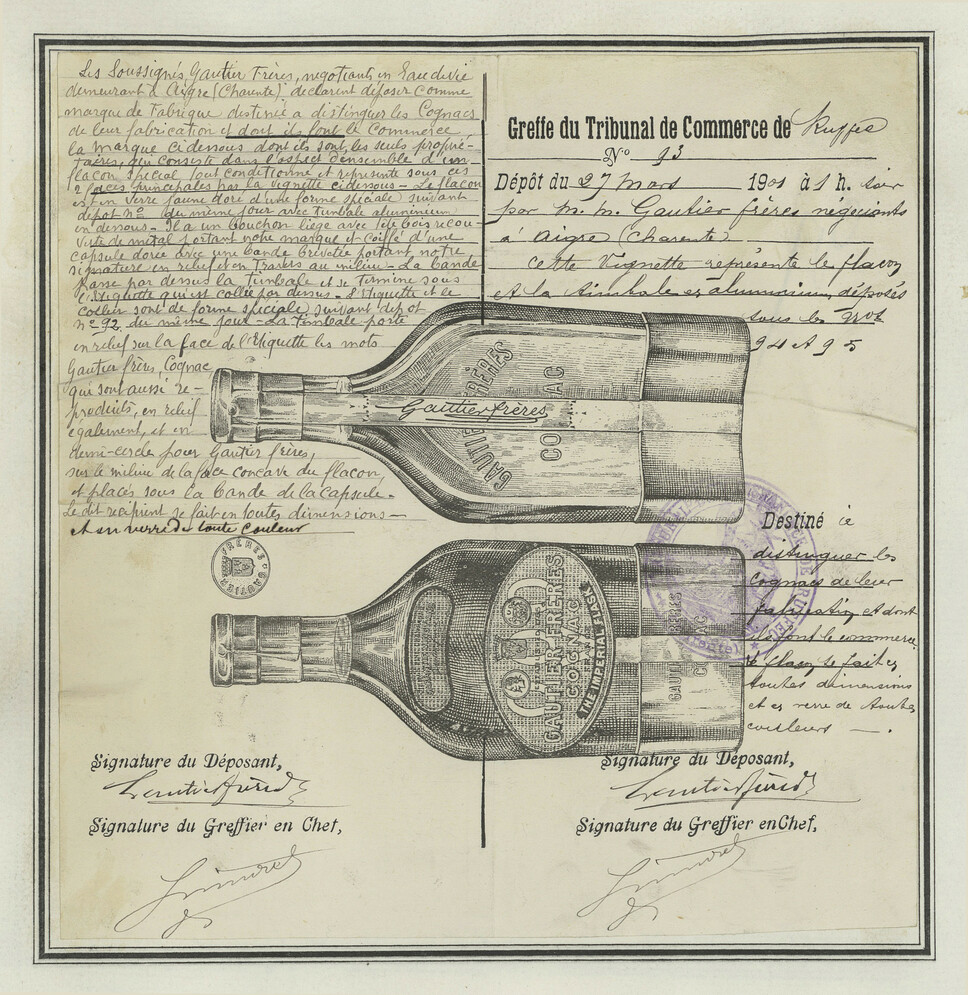 Les Soussignés, Gautier Frères, négotiants en Eau de Vie
demeurant à Aigre (Charente) déclarent déposer comme
marque de Fabrique destinée a distinguer les Cognacs
de leur fabrication et dont ils font le Commerce,
la marque cidessous dont ils sont les seuls proprié-
taires, qui consiste dans l'aspect d'ensemble d'un
flacon spécial tout conditionné et représenté sous ces
2 faces principales par la vignette cidessous – Le flacon
est en verre jaune doré d'une forme spéciale suivant
dépôt nº du même jour avec timbale aluminium
en dessous – Il a un bouchon liège avec tête bois recou-
verte de métal portant notre marque et coiffé d'une
capsule dorée avec une bande brevetée portant notre
signature en relief et en travers au milieu – La bande
passe par dessus la timbale et se termine sous
l'Etiquette qui est collée par dessus – l'Etiquette et le
collier sont de forme spéciale suivant dépôt
nº 92 du même jour – La timbale porte
en relief sur la face de l'Etiquette les mots
Gautier frères, Cognac,
qui sont aussi re-
produits, en relief
également, et en
demi-cercle pour Gautier frères,
sur le milieu de la face concave du flacon,
et placés sous la bande de la capsule.
Le dit récipient se fait en toutes dimensions –
et en verre de toute couleur
Greffe du Tribunal de Commerce de Ruffec
Nº 93
Dépôt du 27 mars 1901 à 1 h. soir
par M. M. Gautier frères négociants
à Aigre (Charente)
Cette Vignette représente le flacon
et la timbale en aluminium, déposés
sous les Nos
94 et 95
GAUTIER FRÈRES
COGNAC
Gautier frères
Destiné à
distinguer les
cognacs de leur
fabrication et dont
ils font le commerce
le flacon se fait en
toutes dimensions
et en verre de toutes
couleurs –.
FRÈRES GAUTIER
GAUTIER FRÈRES
COGNAC
THE IMPERIAL FLASK
Signature du Déposant,
Gautier frères
Signature du Greffier en Chef,
Signature du Déposant,
Gautier frères
Signature du Greffier en Chef,